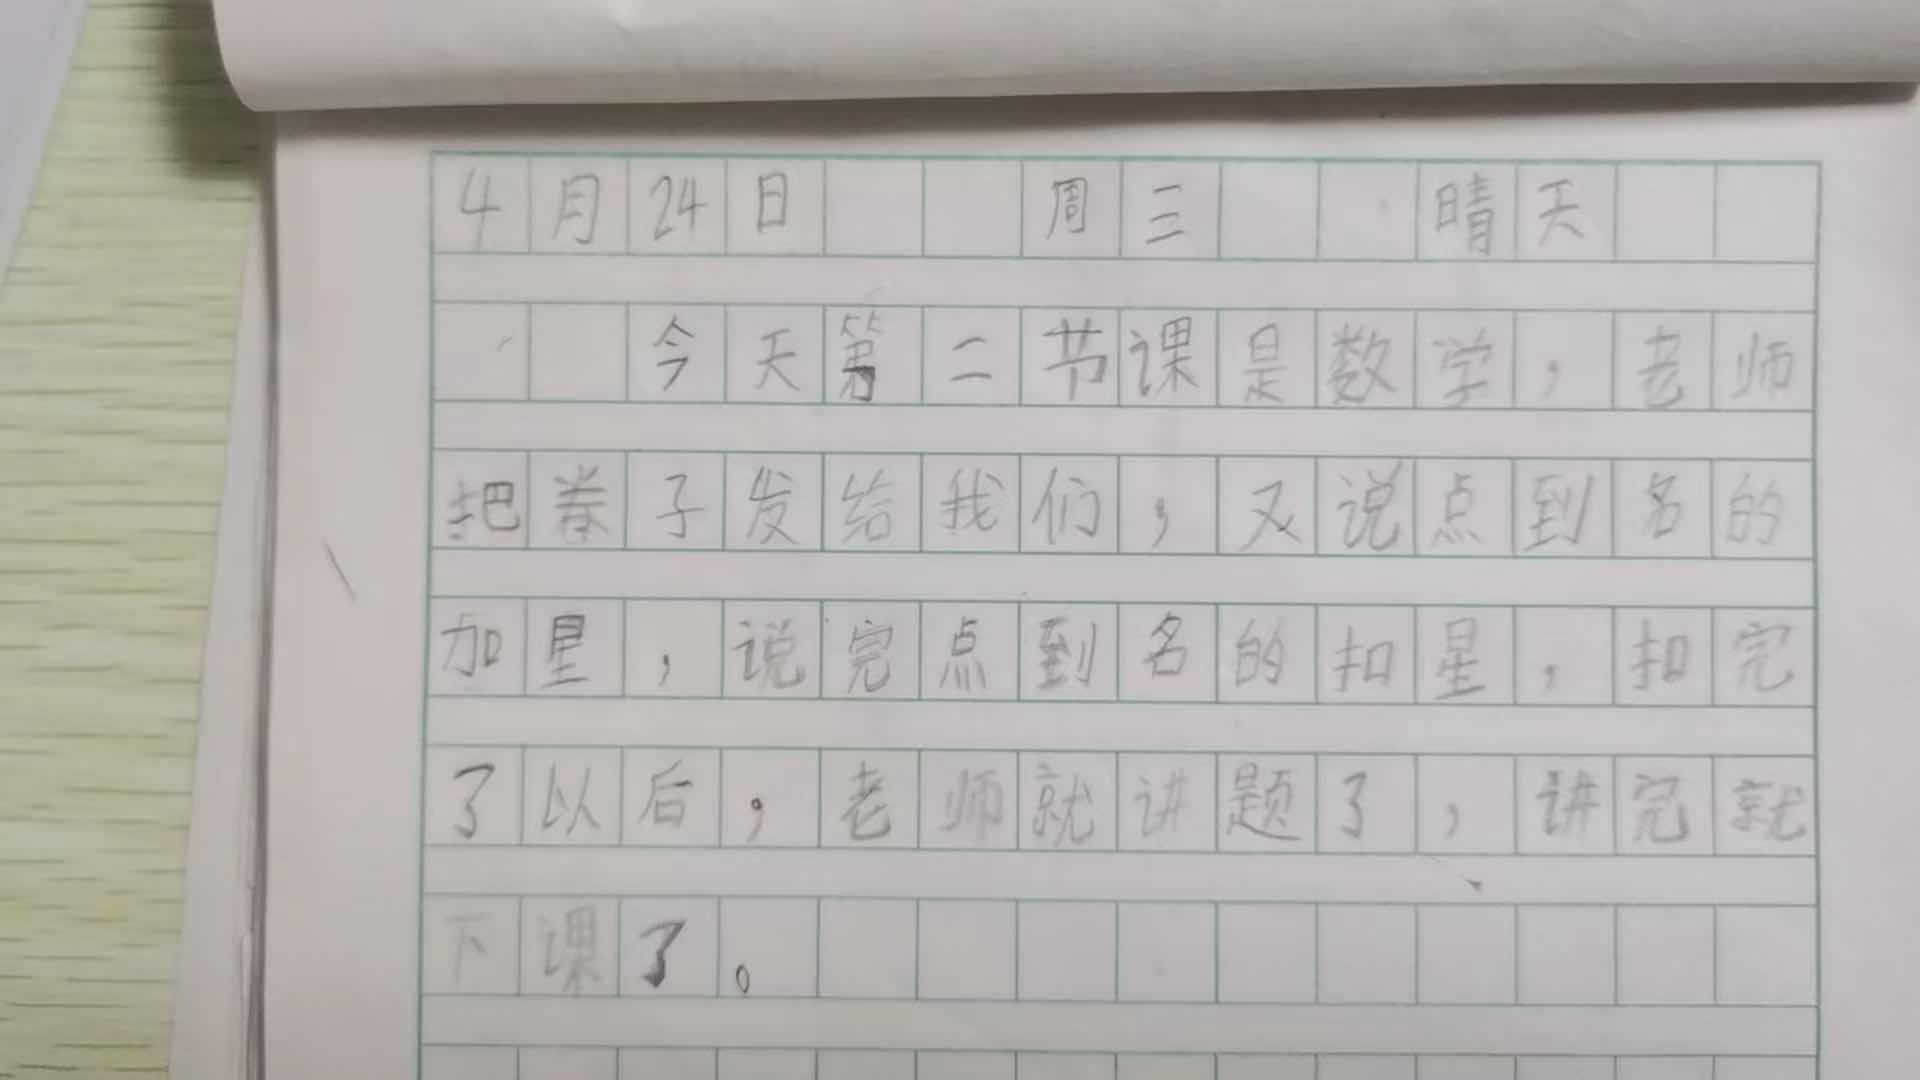 4月24日 周三 晴天
今天第二节课是数学，老师
把卷子发给我们，又说点到名的
加星，说完点到名的扣星，扣完
了以后，老师就讲题了，讲完就
下课了。